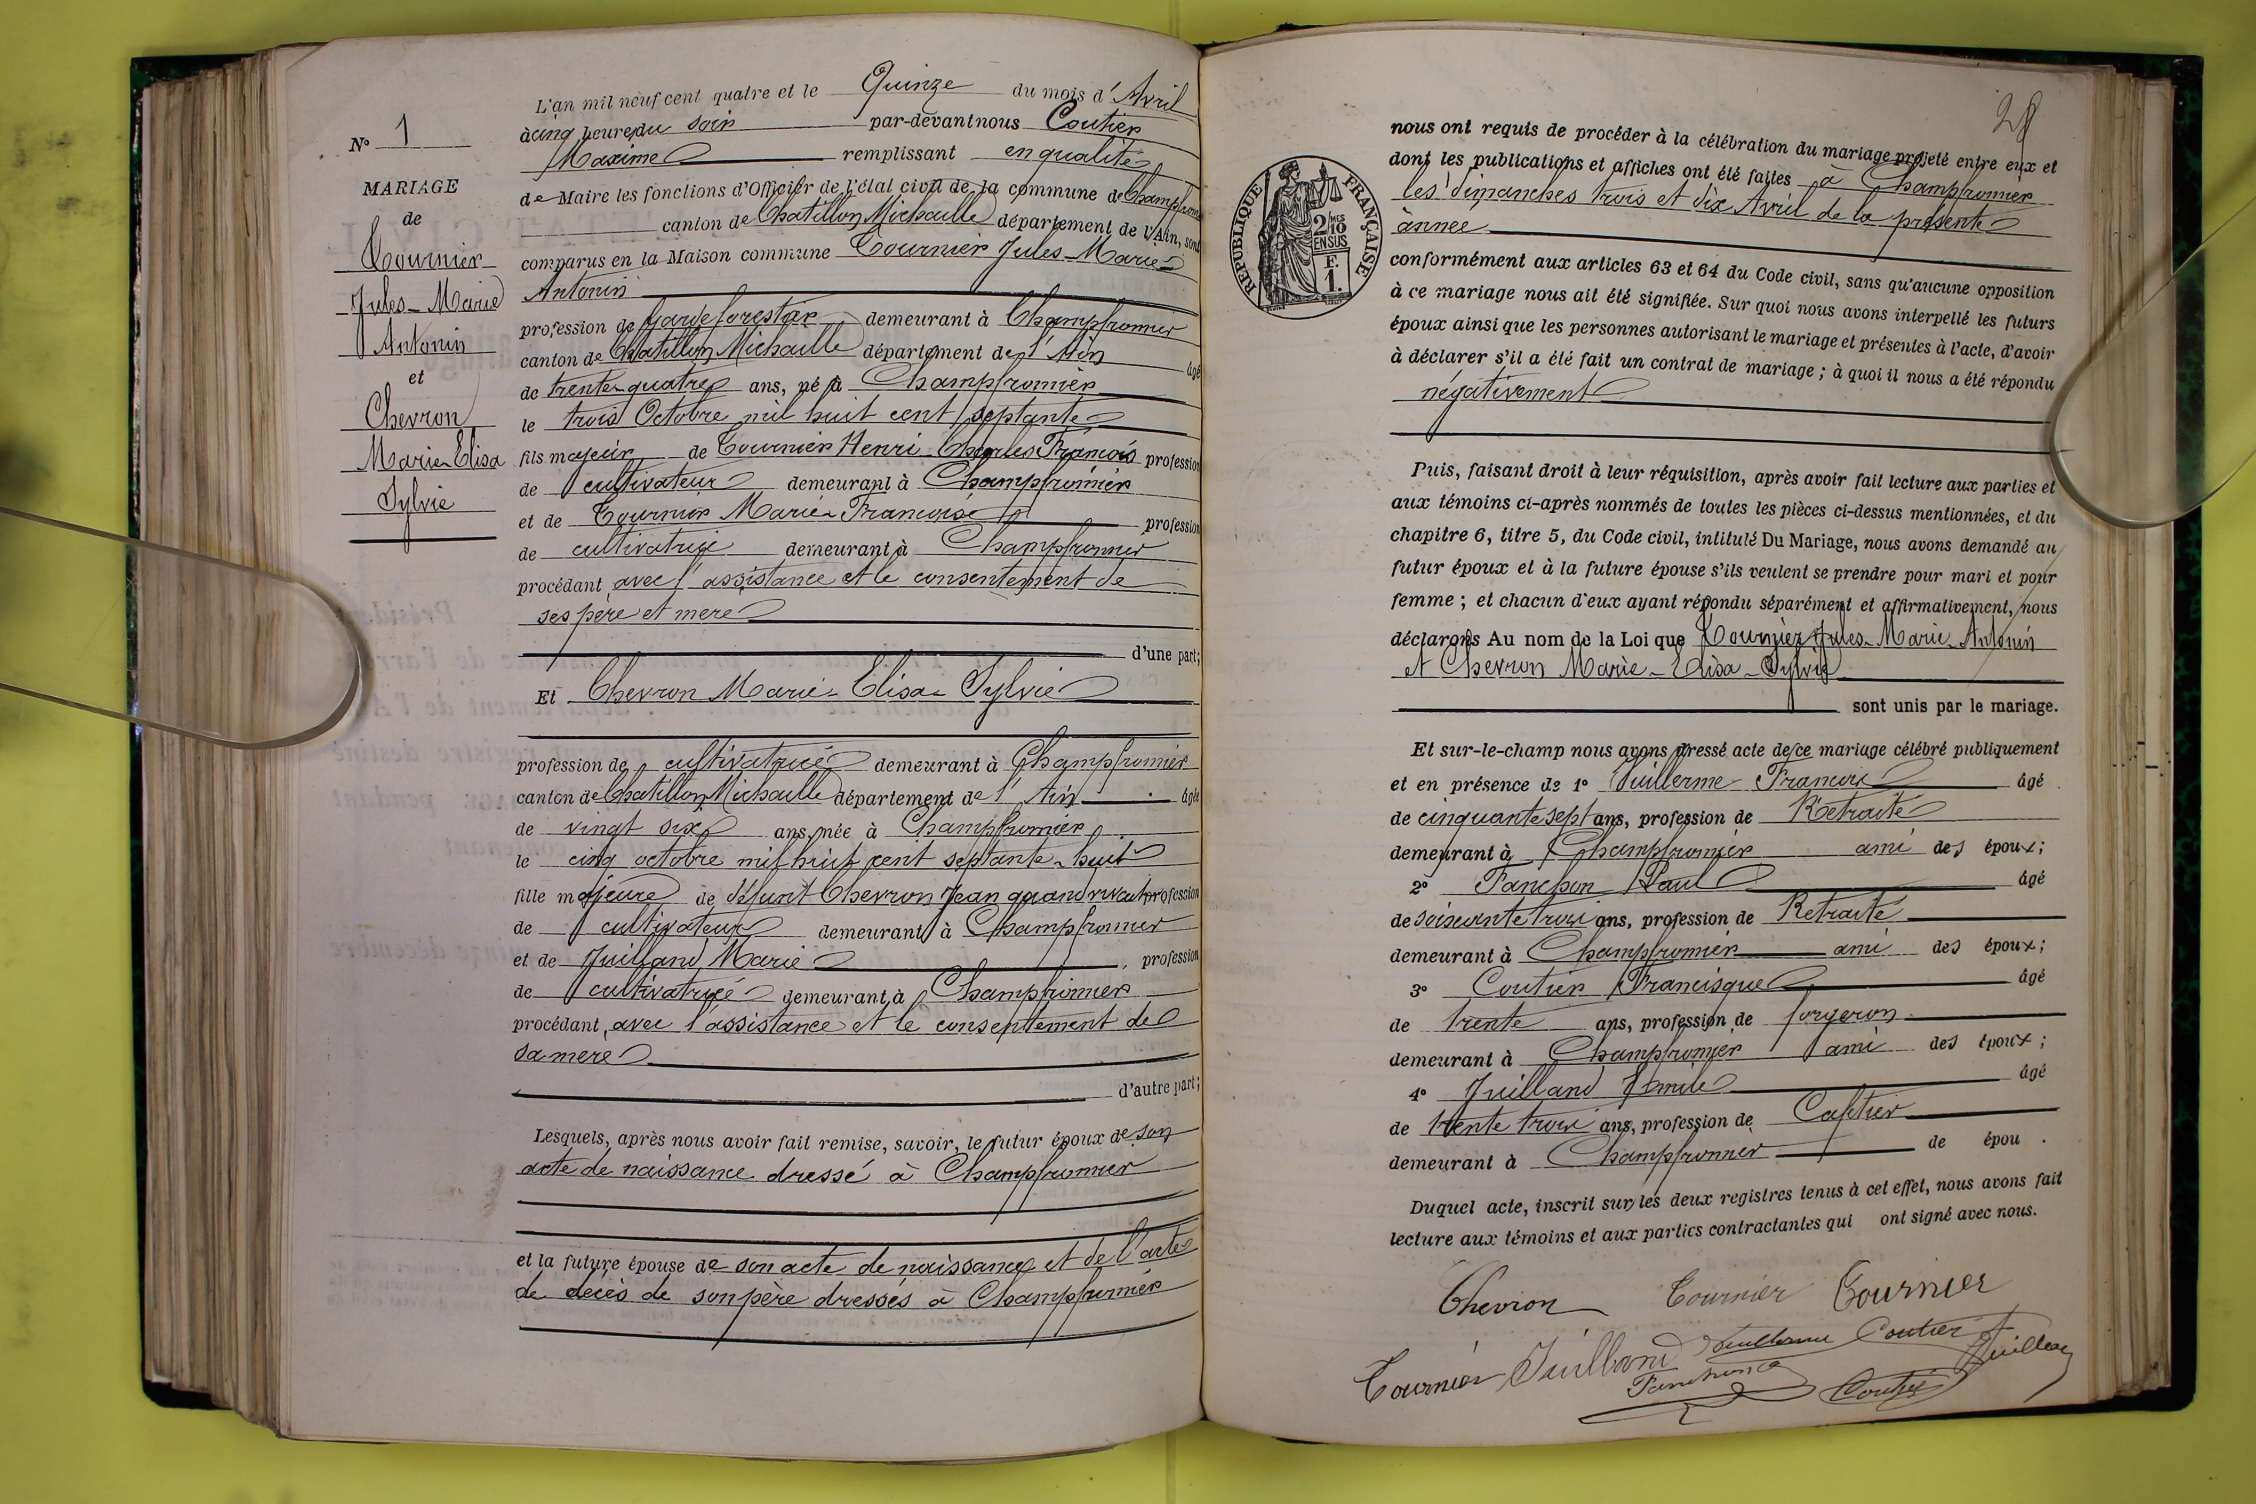 N° 1
MARIAGE
de
Tournier
Jules-Marie
Antonin
et
Chevron
Marie-Elisa
Sylvie
L'an mil neuf cent quatre et le Quinze du mois d'Avril
à cinq heures du soir par-devant nous Coutier
Maxime remplissant en qualité
de Maire les fonctions d'Officier de l'état civil de la commune de Champfrom
canton de Chatillon Michaille département de l'Ain, sont
comparus en la Maison commune Tournier Jules-Marie-
Antonin
profession de Garde forestier demeurant à Champfromier
canton de Chatillon Michaille département de l'Ain âgé
de trente-quatre ans, né à Champfromier
le trois Octobre mil huit cent septante
fils majeur de Tournier Henri-Charles François profession
de cultivateur demeurant à Champfromier
et de Tournier Marie-Françoise profession
de cultivatrice demeurant à Champfromier
procédant avec l'assistance et le consentement de
ses père et mère
d'une part;
Et Chevron Marie-Elisa-Sylvie
profession de cultivatrice demeurant à Champfromier
canton de Chatillon Michaille département de l'Ain âgée
de vingt six ans, née à Champfromier
le cinq octobre mil huit cent septante-huit
fille majeure de défunt Chevron Jean quand vivait profession
de cultivateur demeurant à Champfromier
et de Juilland Marie, profession
de cultivatrice demeurant à Champfromier
procédant avec l'assistance et le consentement de
sa mère
d'autre part;
Lesquels, après nous avoir fait remise, savoir, le futur époux de son
acte de naissance dressé à Champfromier
et la future épouse de son acte de naissance et de l'acte
de décès de son père dressés à Champfromier
28
RÉPUBLIQUE FRANÇAISE
2/10 MES
EN SUS
F.
1.
nous ont requis de procéder à la célébration du mariage projeté entre eux et
dont les publications et affiches ont été faites à Champfromier
les dimanches trois et dix Avril de la présente
année
conformément aux articles 63 et 64 du Code civil, sans qu'aucune opposition
à ce mariage nous ait été signifiée. Sur quoi nous avons interpellé les futurs
époux ainsi que les personnes autorisant le mariage et présentes à l'acte, d'avoir
à déclarer s'il a été fait un contrat de mariage; à quoi il nous a été répondu
négativement
Puis, faisant droit à leur réquisition, après avoir fait lecture aux parties et
aux témoins ci-après nommés de toutes les pièces ci-dessus mentionnées, et du
chapitre 6, titre 5, du Code civil, intitulé Du Mariage, nous avons demandé au
futur époux et à la future épouse s'ils veulent se prendre pour mari et pour
femme; et chacun d'eux ayant répondu séparément et affirmativement, nous
déclarons Au nom de la Loi que Tournier Jules-Marie-Antonin
et Chevron Marie-Elisa-Sylvie
sont unis par le mariage.
Et sur-le-champ nous avons dressé acte de ce mariage célébré publiquement
et en présence de 1° Vuillerme François âgé
de cinquante sept ans, profession de Retraité
demeurant à Champfromier ami des époux;
2° Fanchon Paul âgé
de soixante trois ans, profession de Retraité
demeurant à Champfromier ami des époux;
3° Coutier Francisque âgé
de trente ans, profession de forgeron
demeurant à Champfromier ami des époux;
4° Juilland Emile âgé
de trente trois ans, profession de
demeurant à Champfromier de épou .
Duquel acte, inscrit sur les deux registres tenus à cet effet, nous avons fait
lecture aux témoins et aux parties contractantes qui ont signé avec nous.
Chevron Tournier Tournier
Tournier Juilland Vuillerme Coutier
Fanchon Coutier